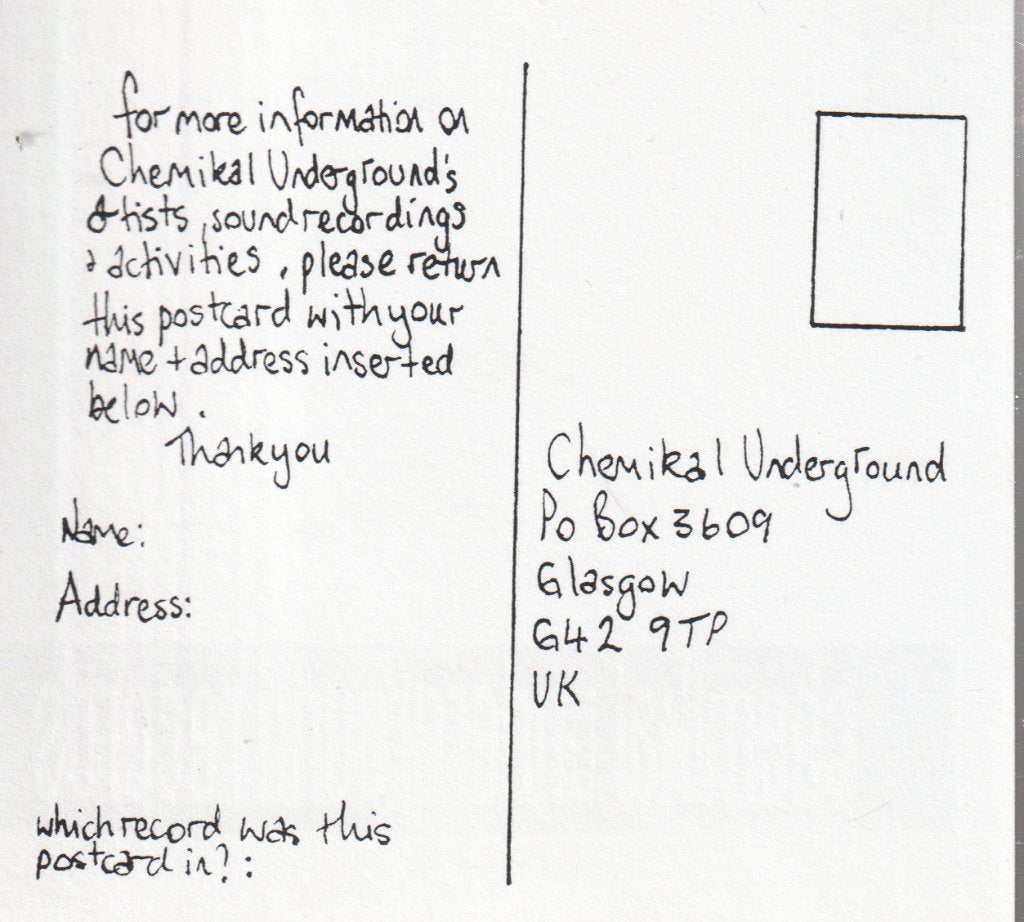 for more information on
Chemikal Underground's
artists, sound recordings
& activities, please return
this postcard with your
name + address inserted
below.
Thankyou
Name:
Address:
which record was this
postcard in?:
Chemikal Underground
Po Box 3609
Glasgow
G42 9TP
UK